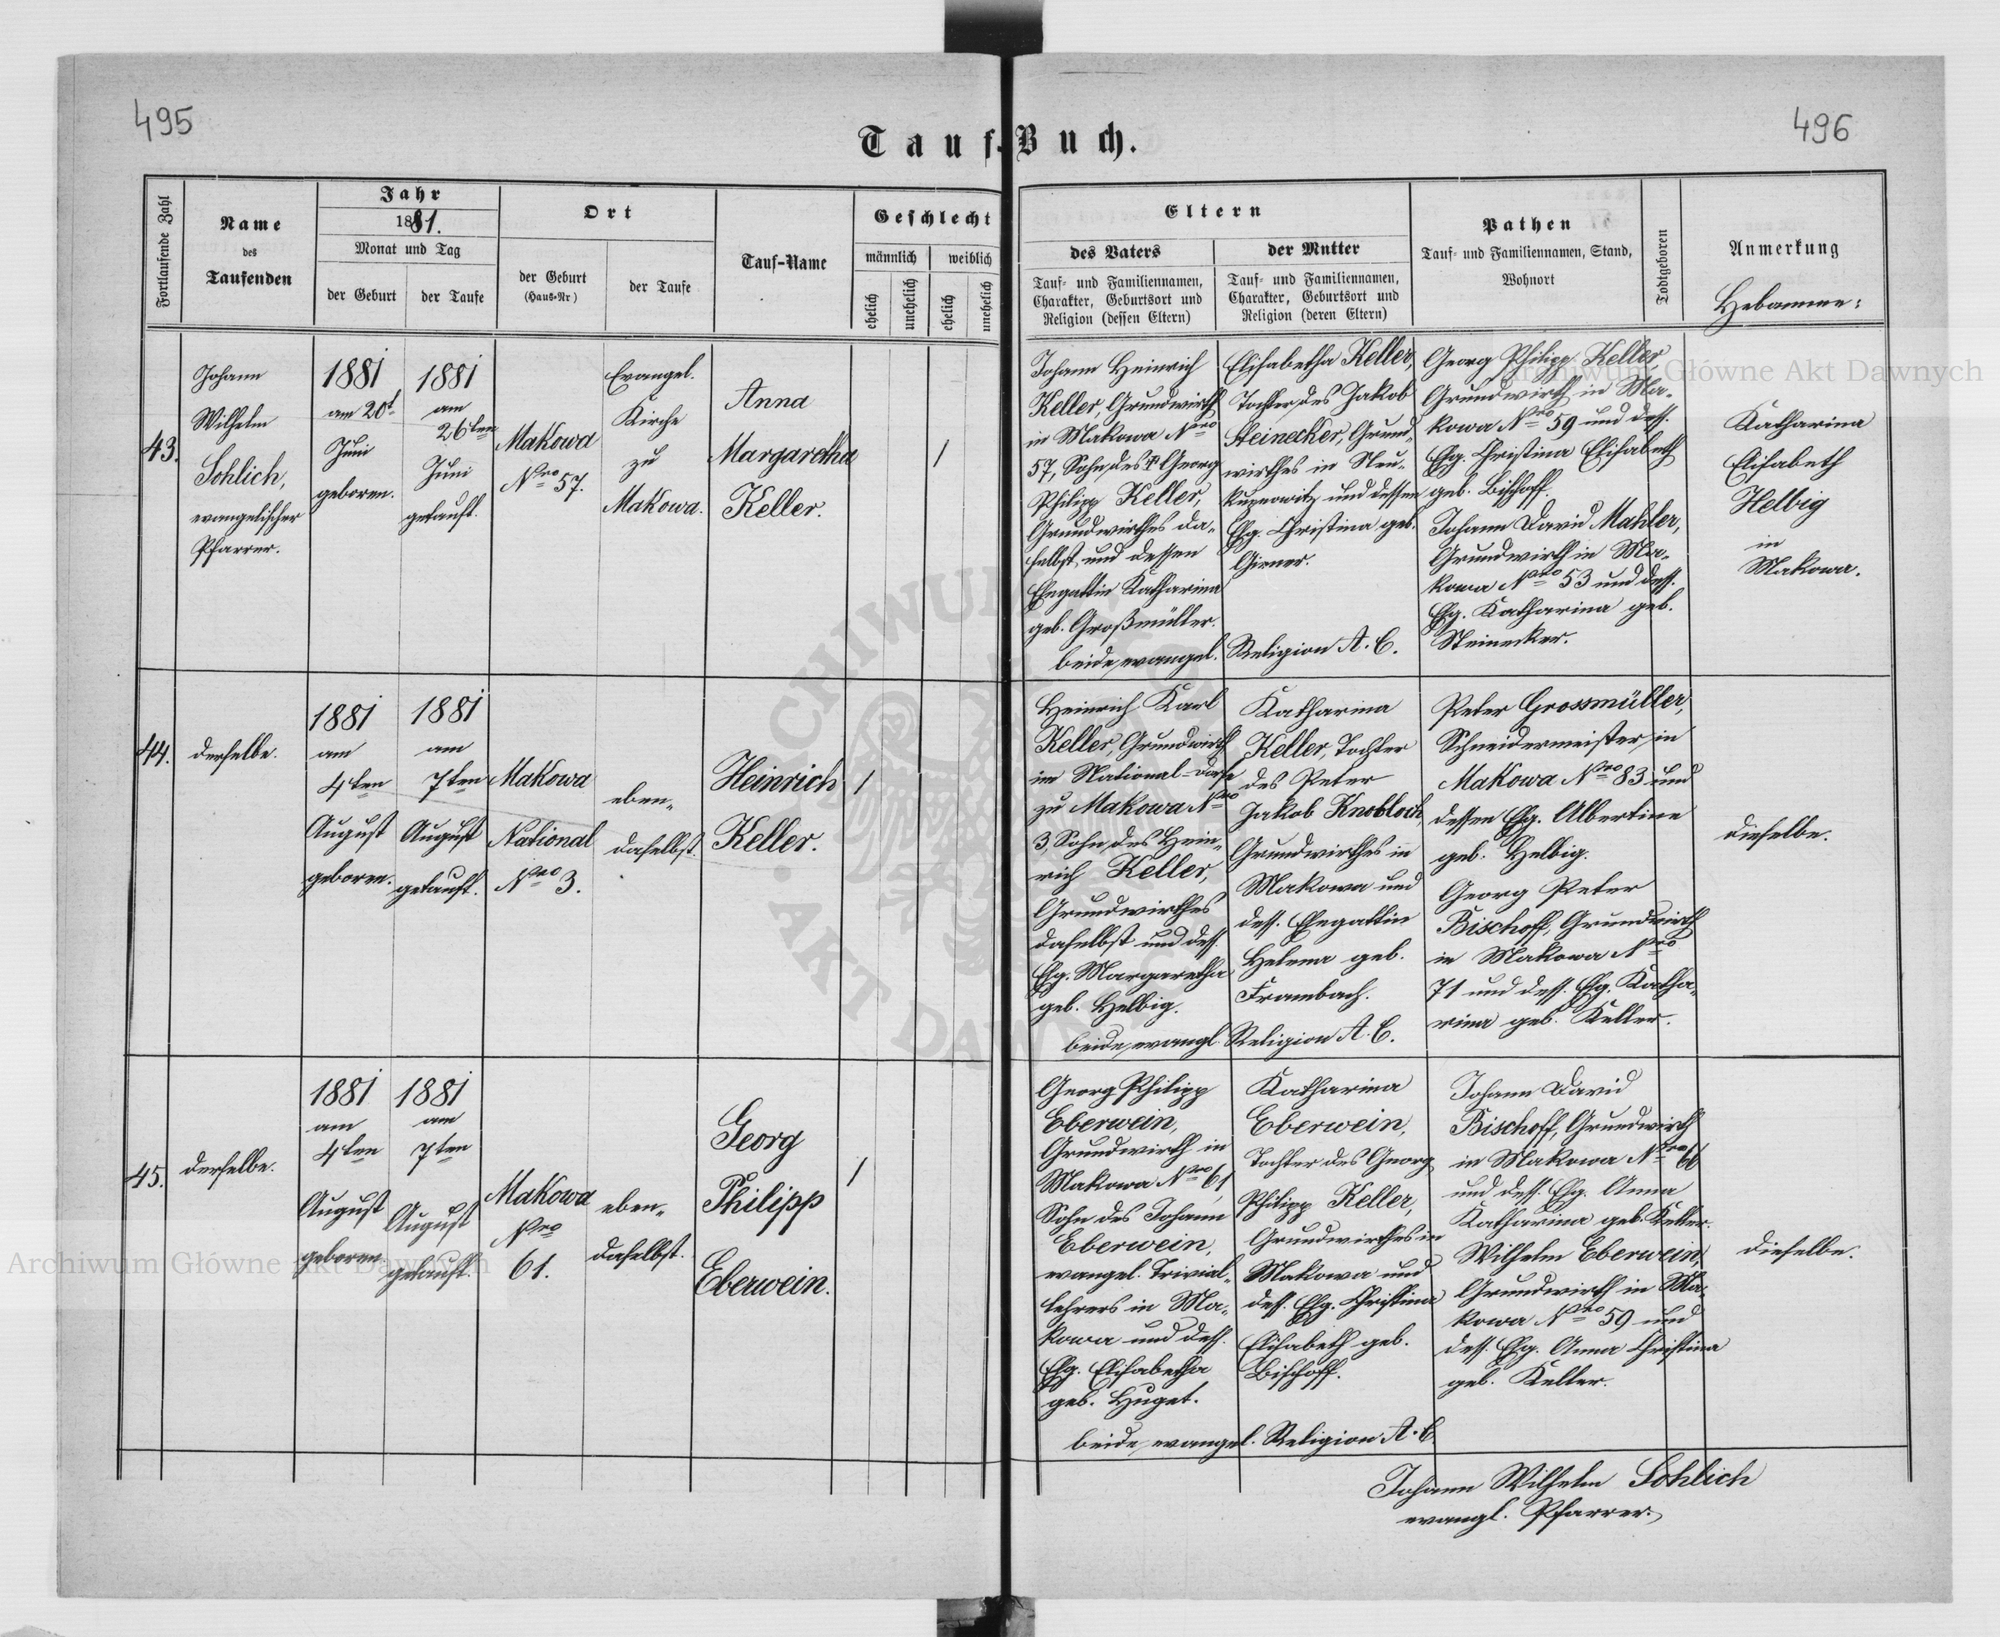 495
496
Tauf-Buch.
Fortlaufende Zahl
Name
des
Taufenden
Jahr
1881.
Monat und Tag
der Geburt
der Taufe
Ort
der Geburt
(Haus-Nr)
der Taufe
Tauf-Name
Geschlecht
männlich
weiblich
ehelich
unehelich
ehelich
unehelich
Eltern
des Vaters
Tauf- und Familiennamen,
Charakter, Geburtsort und
Religion (dessen Eltern)
der Mutter
Tauf- und Familiennamen,
Charakter, Geburtsort und
Religion (deren Eltern)
Pathen
Tauf- und Familiennamen, Stand,
Wohnort
Todtgeboren
Anmerkung
Hebamme:
43.
Johann
Wilhelm
Sohlich,
evangelischer
Pfarrer.
1881
am 20t
Juni
geboren.
1881
am
26ten
Juni
getauft.
Makowa
Nro 57.
Evangel.
Kirche
zu
Makowa.
Anna
Margaretha
Keller.
1
Johann Heinrich
Keller, Grundwirth
in Makowa Nro
57, Sohn des Georg
Philipp Keller,
Grundwirthes da-
selbst, und dessen
Ehegattin Katharina
geb. Großmüller.
Elisabetha Keller,
Tochter des Jakob
Steinecker, Grund-
wirthes in Neu-
kupnowitz und dessen
Ehg. Christina geb.
Girner.
beide, evangel. Religion A. C.
Georg Philipp Keller,
Grundwirth in Ma-
kowa Nro 59 und dess.
Ehg. Christina Elisabeth
geb. Bischoff.
Johann David Mahler,
Grundwirth in Ma-
kowa Nro 53 und dess.
Ehg. Katharina geb.
Steinecker.
Katharina
Elisabeth
Helbig
in
Makowa.
44.
derselbe.
1881
am
4ten
August
geboren.
1881
am
7ten
August
getauft.
Makowa
National
Nro 3.
eben-
daselbst.
Heinrich
Keller.
1
Heinrich Karl
Keller, Grundwirth
im National-Dorfe
zu Makowa Nro
3, Sohn des Hein-
rich Keller,
Grundwirthes
daselbst und dess.
Ehg. Margaretha
geb. Helbig.
Katharina
Keller, Tochter
des Peter
Jakob Knobloch,
Grundwirthes in
Makowa und
dess. Ehegattin
Helena geb.
Frambach.
beide, evangl. Religion A. C.
Peter Grossmüller,
Schneidermeister, in
Makowa Nro 83 und
dessen Ehg. Albertine
geb. Helbig.
Georg Peter
Bischoff, Grundwirth
in Makowa Nro
71 und dess. Ehg. Katha-
rina geb. Keller.
dieselbe.
45.
derselbe.
1881
am
4ten
August
geboren
1881
am
7ten
August
getauft.
Makowa
Nro
61.
eben-
daselbst.
Georg
Philipp
Eberwein.
1
Georg Philipp
Eberwein,
Grundwirth in
Makowa Nro 61,
Sohn des Johann
Eberwein,
evangel. Trivial-
lehrers in Ma-
kowa und dess.
Ehg. Elisabetha
geb. Huget.
Katharina
Eberwein,
Tochter des Georg
Philipp Keller,
Grundwirthes in
Makowa und
dess. Ehg. Christina
Elisabeth geb.
Bischoff.
beide, evangel. Religion A. C.
Johann David
Bischoff, Grundwirth
in Makowa Nro 66
und dess. Ehg. Anna
Katharina geb. Keller.
Wilhelm Eberwein,
Grundwirth in Ma-
kowa Nro 59 und
dess. Ehg. Anna Christina
geb. Keller.
dieselbe.
Johann Wilhelm Sohlich
evangl. Pfarrer.
Archiwum Główne Akt Dawnych
Archiwum Główne Akt Dawnych